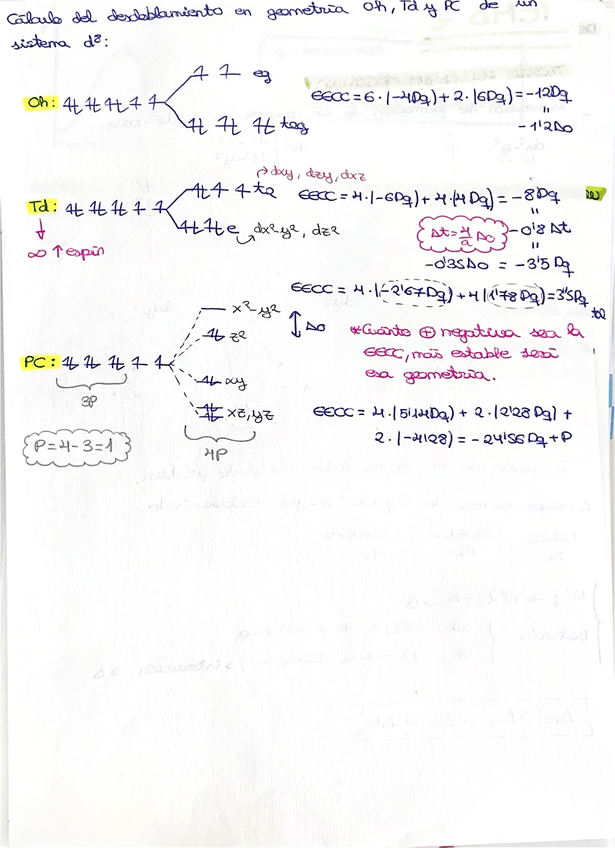 Cálculo del desdoblamiento en geometría Oh, Td y PC de un
sistema d8:
eg
Oh: EECC = 6·(-4Dq) + 2·(6Dq) = -12Dq
"
t2g - 1'2Δo
→ dxy, dzy, dxz
t2 EECC = 4·(-6Dq) + 4·(4Dq) = -8Dq
Td: "
e Δt = 4/9 Δo -0'8 Δt
dx²y², dz² "
∞ ↑ espín -0'35Δo = -3'5 Dq
EECC = 4·(-2'67Dq) + 4(1'78Dq) = 3'5Dq
x²-y²
Δo
z² *Cuánto ⊕ negativa sea la
EECC, más estable será
PC: xy esa geometría.
3P xz, yz EECC = 4·(5'14Dq) + 2·(2'28Dq) +
P = 4 - 3 = 1 4P 2·(-4'28) = -24'56Dq + P